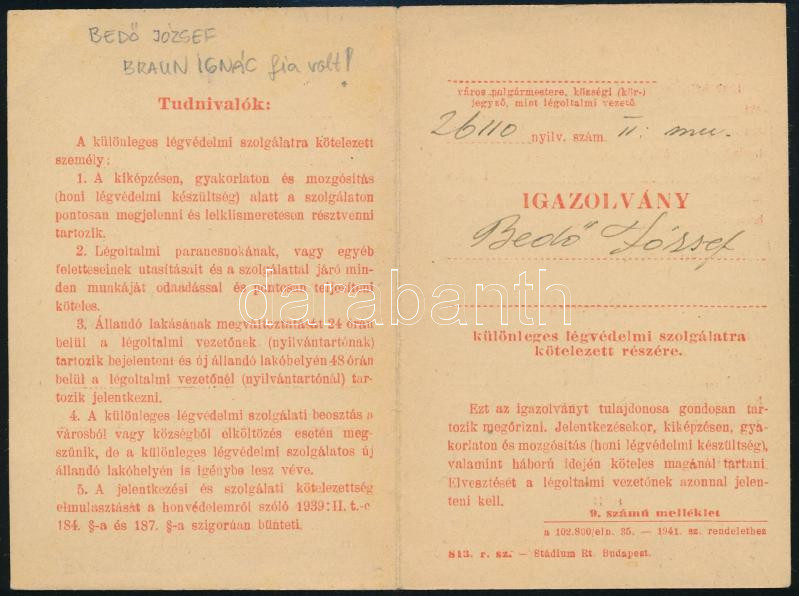 BEDŐ JÓZSEF
BRAUN IGNÁC fia volt!
Tudnivalók:
A különleges légvédelmi szolgálatra kötelezett
személy:
1. A kiképzésen, gyakorlaton és mozgósítás
(honi légvédelmi készültség) alatt a szolgálaton
pontosan megjelenni és lelkiismeretesen résztvenni
tartozik.
2. Légoltalmi parancsnokának, vagy egyéb
feletteseinek utasításait és a szolgálattal járó min-
den munkáját odaadással és pontosan terjesíteni
köteles.
3. Állandó lakásának megváltoztatását 24 órán
belül a légoltalmi vezetőnek (nyilvántartónak)
tartozik bejelenteni és új állandó lakóhelyén 48 órán
belül a légoltalmi vezetőnél (nyilvántartónál) tar-
tozik jelentkezni.
4. A különleges légvédelmi szolgálati beosztás a
városból vagy községből elköltözés esetén meg-
szünik, de a különleges légvédelmi szolgálatos új
állandó lakóhelyén is igénybe lesz véve.
5. A jelentkezési és szolgálati kötelezettség
elmulasztását a honvédelemről szóló 1939:II. t.-c
184. §-a és 187. §-a szigorúan bünteti.
város polgármestere, községi (kör-)
jegyző, mint légoltalmi vezető
26110 nyilv. szám II. mu.
IGAZOLVÁNY
Bedő József
különleges légvédelmi szolgálatra
kötelezett részére.
Ezt az igazolványt tulajdonosa gondosan tar-
tozik megőrizni. Jelentkezésekor, kiképzésen, gya-
korlaton és mozgósítás (honi légvédelmi készültség),
valamint háború idején köteles magánál tartani.
Elvesztését a légoltalmi vezetőnek azonnal jelen-
teni kell.
9. számú melléklet
a 102.800/eln. 35. — 1941. sz. rendelethez
813. r. sz. — Stádium Rt. Budapest.
darabanth